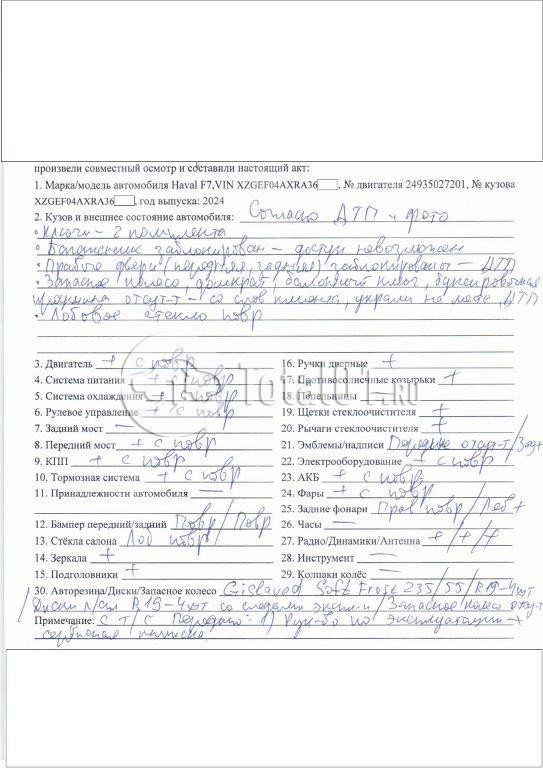 произвели совместный осмотр и составили настоящий акт:
1. Марка/модель автомобиля Haval F7,VIN XZGEF04AXRA36, № двигателя 24935027201, № кузова
XZGEF04AXRA36, год выпуска: 2024
2. Кузов и внешнее состояние автомобиля: Согласно ДТП и фото
• Ключи – 2 комплекта
• Багажник заблокирован – доступ невозможен
• Правые двери (передняя, задняя) заблокированы – ДТП
• Запасное колесо, домкрат, баллонный ключ, буксировочная
проушина отсут-т – со слов клиента, украли на месте ДТП
• Лобовое стекло повр
3. Двигатель + с повр
16. Ручки дверные +
4. Система питания + с повр
17. Противосолнечные козырьки +
5. Система охлаждения + с повр
18. Пепельницы —
6. Рулевое управление + с повр
19. Щетки стеклоочистителя +
7. Задний мост —
20. Рычаги стеклоочистителя +
8. Передний мост + с повр
21. Эмблемы/надписи Передние отсут-т/Зад+
9. КПП + с повр
22. Электрооборудование + с повр
10. Тормозная система + с повр
23. АКБ + с повр
11. Принадлежности автомобиля —
24. Фары + с повр
25. Задние фонари Прав повр/Лев +
12. Бампер передний/задний Повр / Повр
26. Часы —
13. Стёкла салона Лоб повр
27. Радио/Динамики/Антенна +/+/+
14. Зеркала +
28. Инструмент —
15. Подголовники +
29. Колпаки колёс —
30. Авторезина/Диски/Запасное колесо Gislaved Soft Frost 235/55/R19-4шт
Диски л/спл R19-4шт со следами экспл-и/Запасное колесо отсут-т
Примечание: С Т/С Передано: 1) Рук-во по эксплуатации +
сервисная книжка
Total01.ru